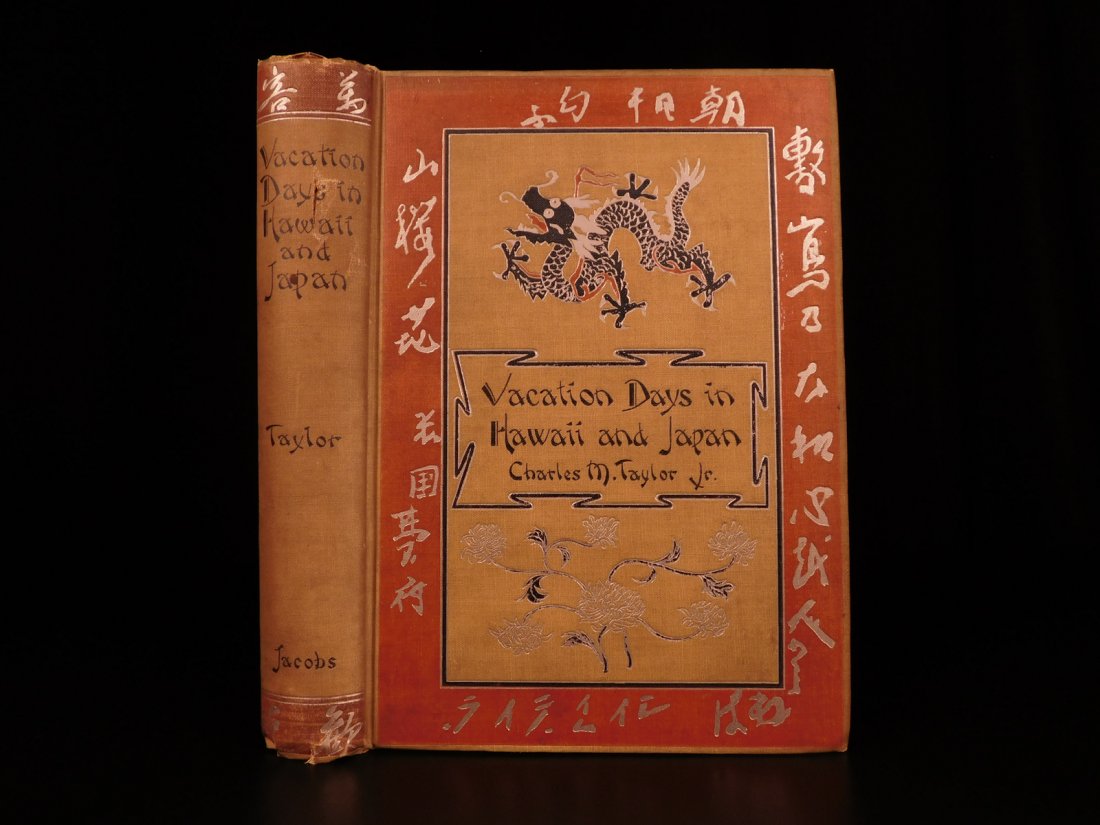 客萬
Vacation
Days in
Hawaii
and
Japan
Taylor
Jacobs
歓
Vacation Days in
Hawaii and Japan
Charles M. Taylor Jr.
敷嶌乃大和心越人
朝日
匂
山櫻花